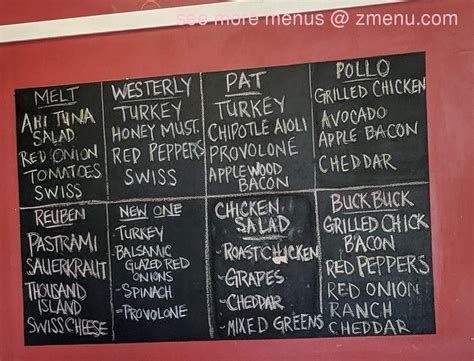 see more menus @ zmenu.com
MELT
AHI TUNA
SALAD
RED ONION
TOMATOES
SWISS
WESTERLY
TURKEY
HONEY MUST.
RED PEPPERS
SWISS
PAT
TURKEY
CHIPOTLE AIOLI
PROVOLONE
APPLEWOOD
BACON
POLLO
GRILLED CHICKEN
AVOCADO
APPLE BACON
CHEDDAR
REUBEN
PASTRAMI
SAUERKRAUT
THOUSAND
ISLAND
SWISS CHEESE
NEW ONE
TURKEY
BALSAMIC
GLAZED RED
ONIONS
-SPINACH
-PROVOLONE
CHICKEN
SALAD
-ROAST CHICKEN
-GRAPES
-CHEDDAR
-MIXED GREENS
BUCK BUCK
GRILLED CHICK
BACON
RED PEPPERS
RED ONION
RANCH
CHEDDAR